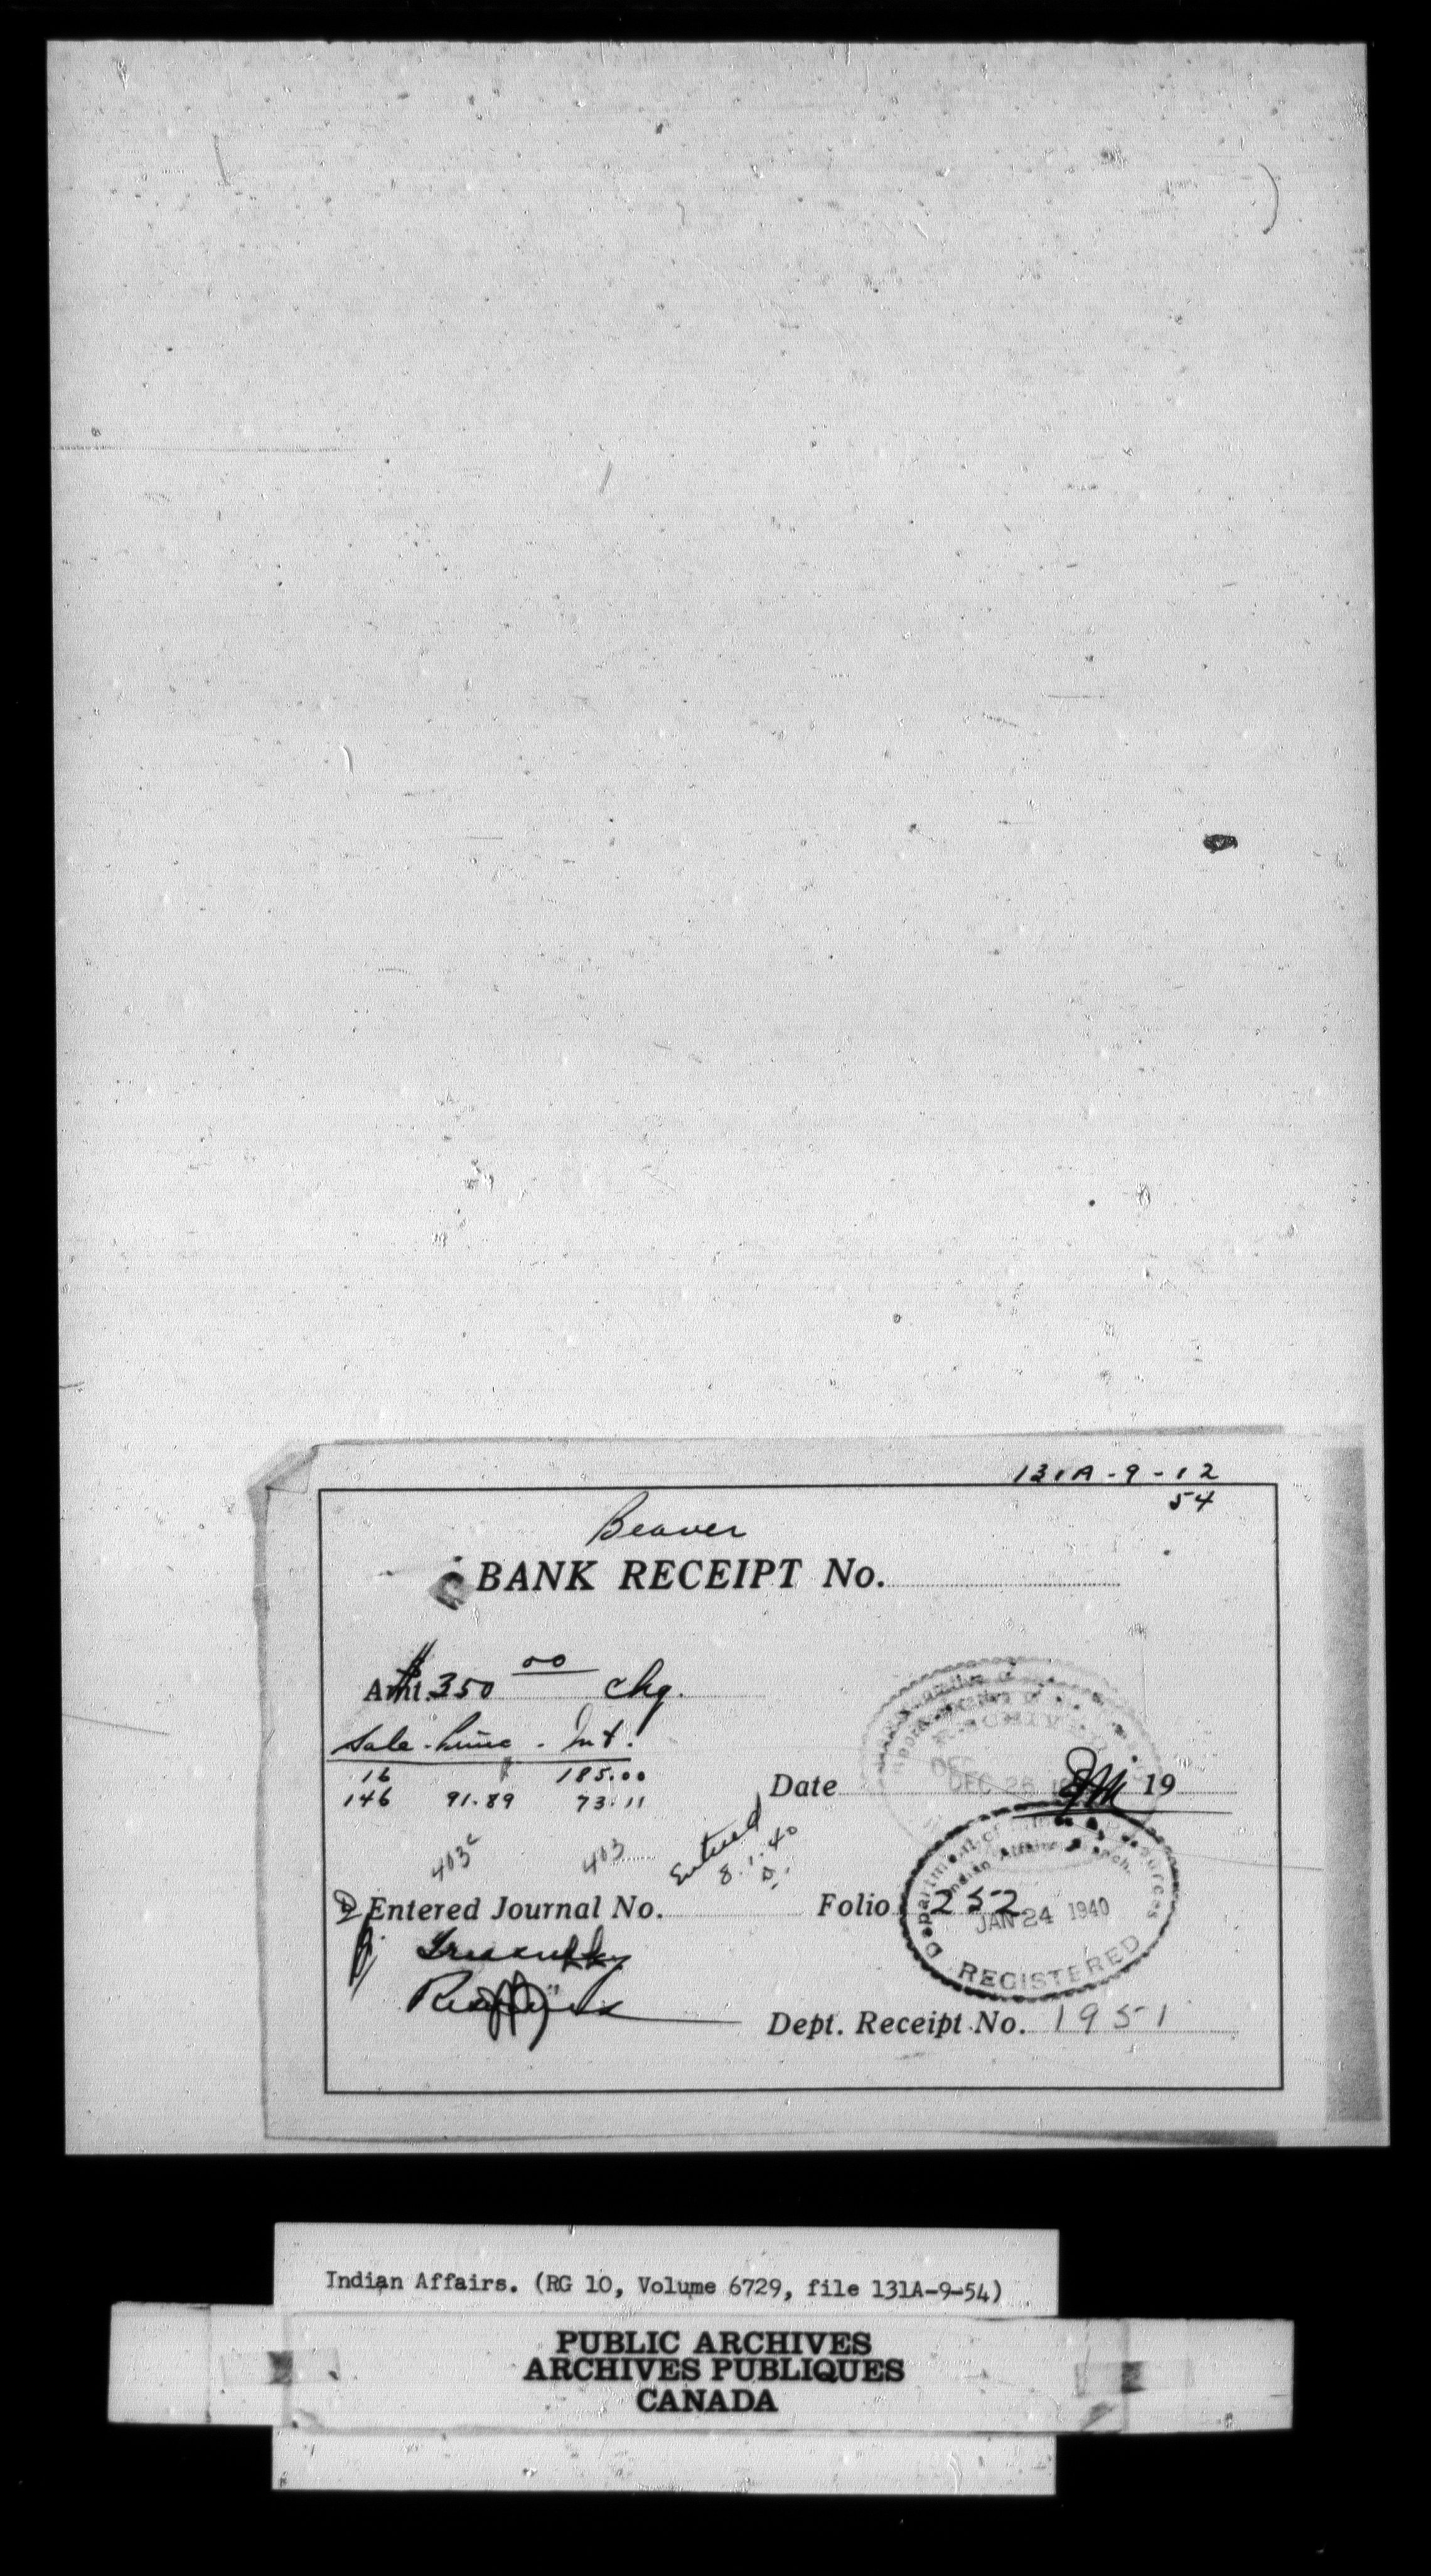 131A-9-12
54
Beaver
BANK RECEIPT No.
Amt. $350 00 chq.
Sale - Princ - Int.
16 185.00
146 91.89 73.11
Date DEC 26 19
Entered
8.1.40
403 403
Entered Journal No. Folio 252
Department of Mines & Resources
Indian Affairs Branch
JAN 24 1940
REGISTERED
Dept. Receipt No. 1951
Indian Affairs. (RG 10, Volume 6729, file 131A-9-54)
PUBLIC ARCHIVES
ARCHIVES PUBLIQUES
CANADA